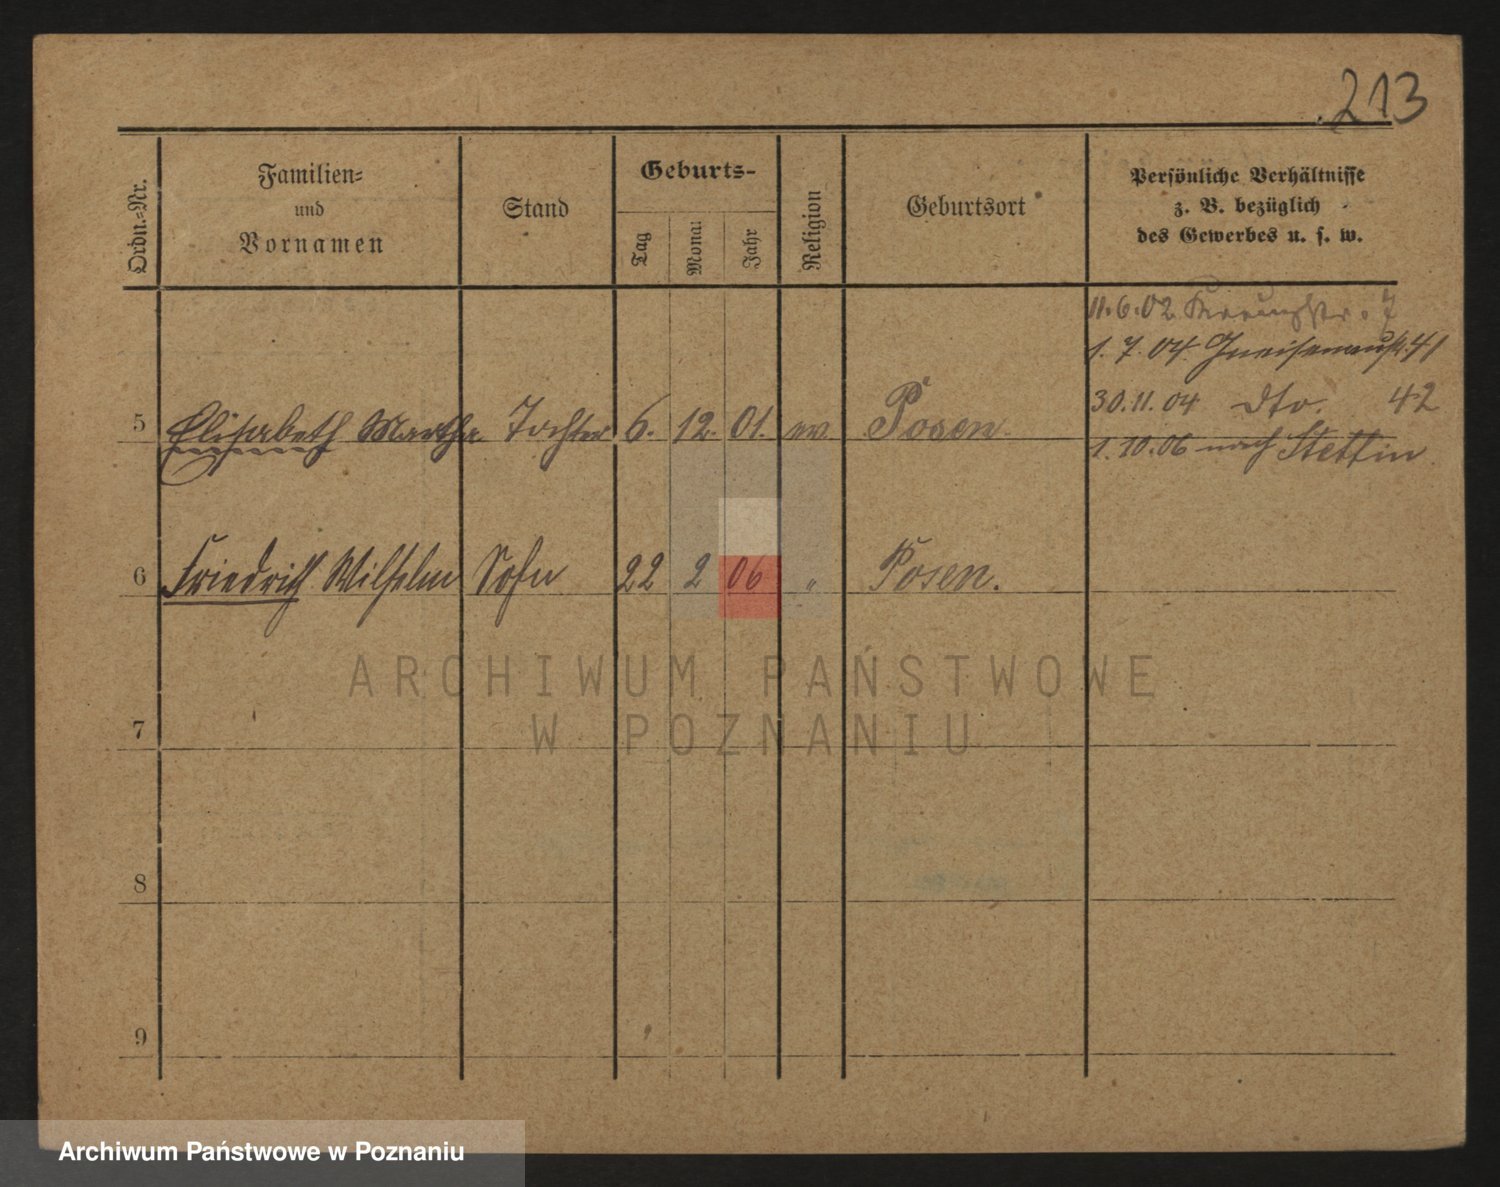 213
Ordn.-Nr.
Familien-
und
Vornamen
Stand
Geburts-
Tag
Monat
Jahr
Religion
Geburtsort
Persönliche Verhältnisse
z. B. bezüglich
des Gewerbes u. s. w.
11.6.02
1. 7. 04 Gneisenaustr. 41
30.11.04 dto. 42
5 Elisabeth Martha Tochter 6. 12. 01. ev. Posen
1.10.06 nach Stettin
6 Friedrich Wilhelm Sohn 22 2 06 " Posen.
ARCHIWUM PAŃSTWOWE
W POZNANIU
7
8
9
Archiwum Państwowe w Poznaniu